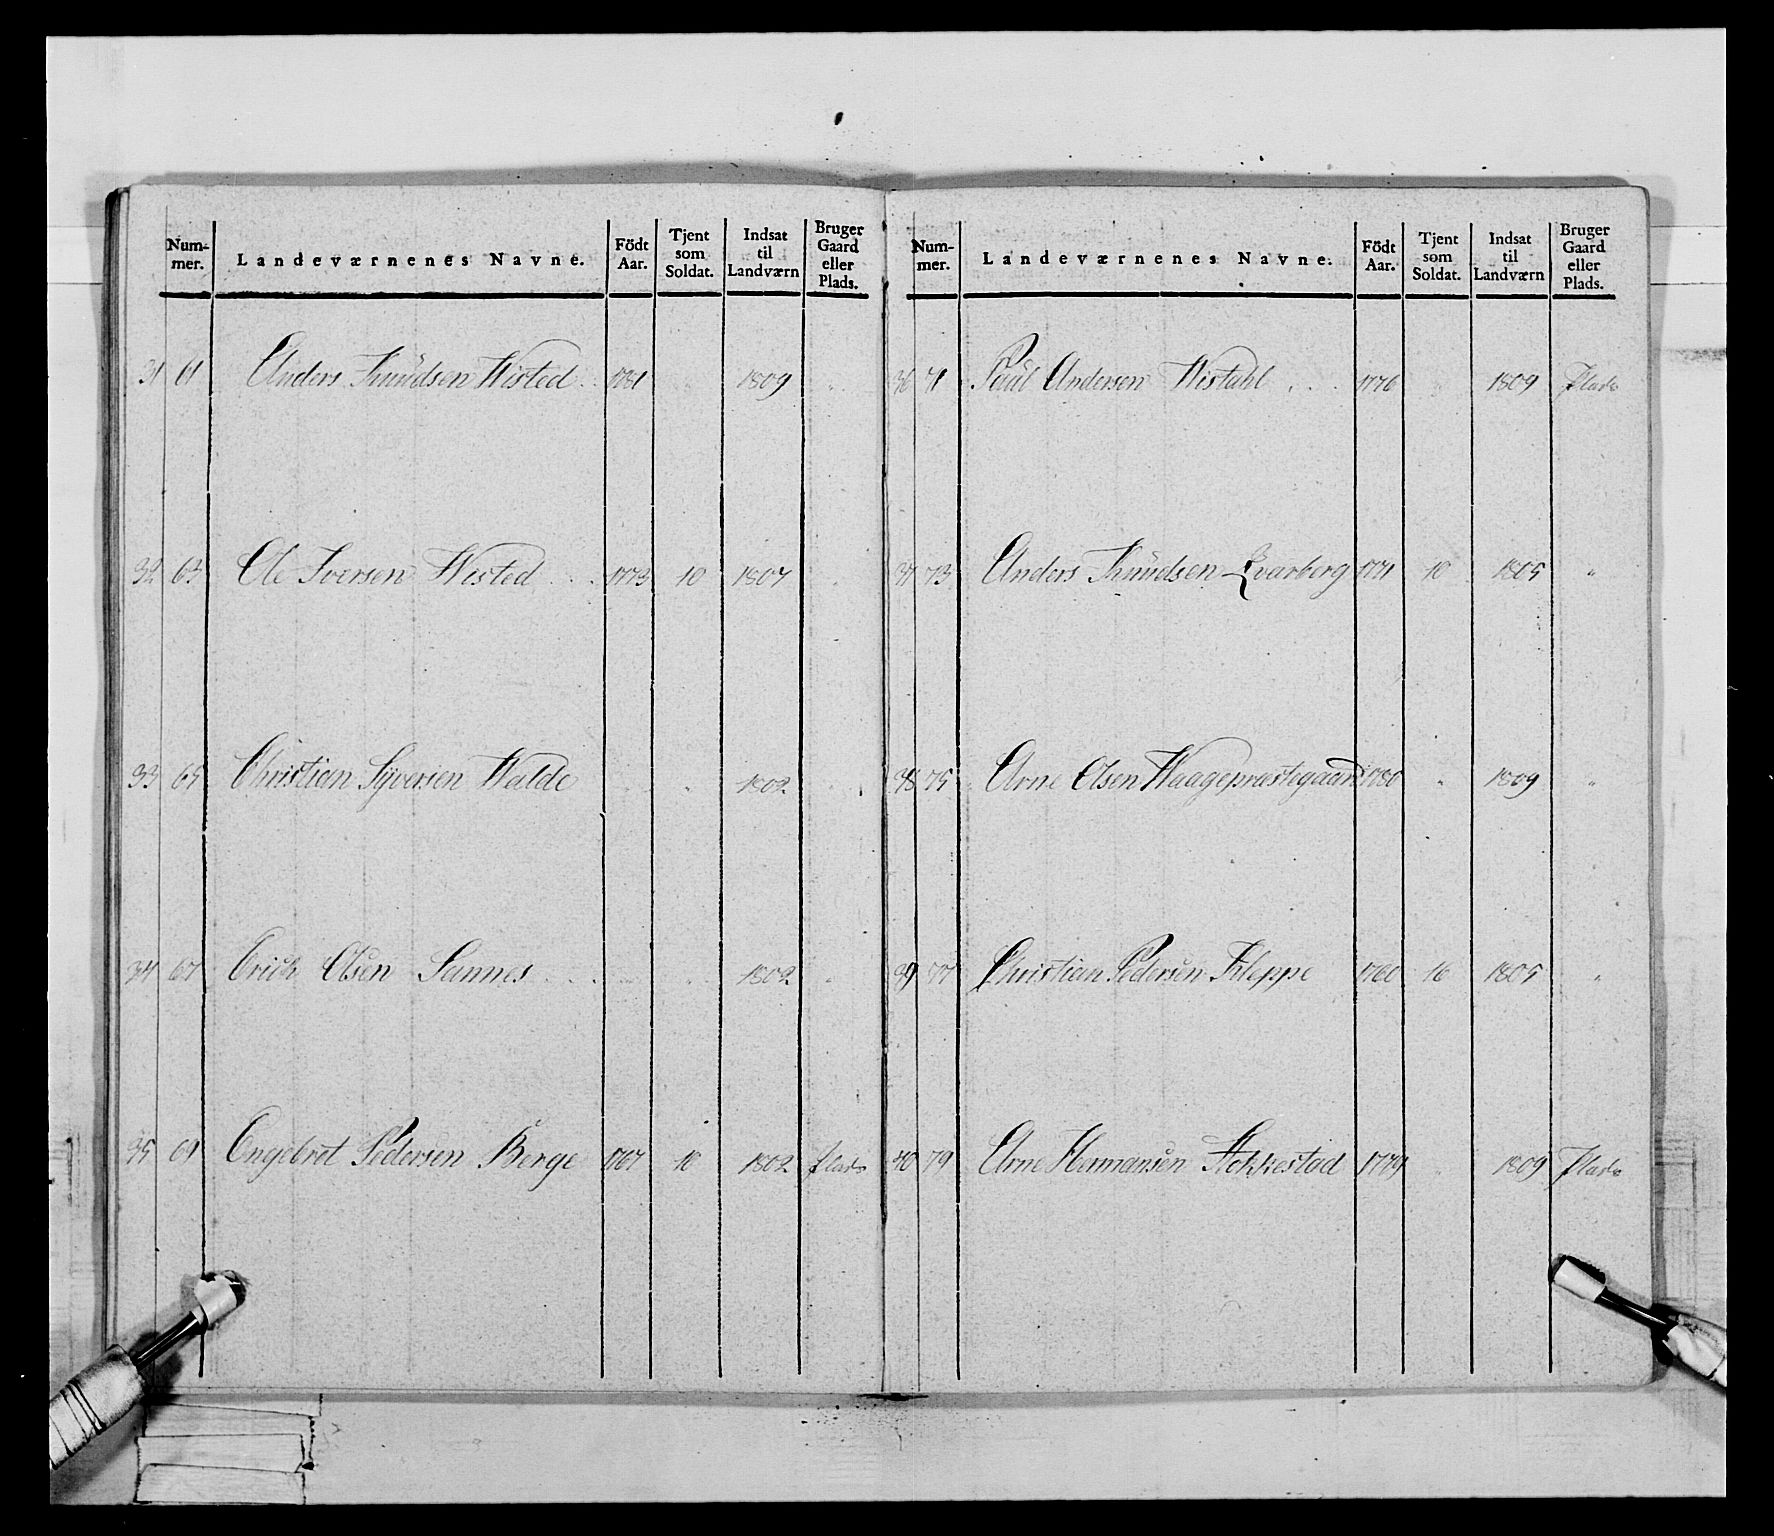 Num-mer. Landeværnenes Navne. Födt Aar. Tjent som Soldat. Indsat til Landværn Bruger Gaard eller Plads.
31 61 Anders Knüdsen Wisted . . 1781 1809 "
32 63 Ole Iversen Wisted . . . 1773 10 1807
33 65 Christian Syversen Walde " 1802 "
34 67 Erich Olsen Sannes . . . " 1802 "
35 69 Engebret Pedersen Berge 1767 10 1802 Plads
Num-mer. Landeværnenes Navne. Födt Aar. Tjent som Soldat. Indsat til Landværn Bruger Gaard eller Plads.
36 71 Paül Andersen Wistahl . . . 1776 " 1809 Plads
37 73 Anders Knüdsen Qvarberg 1771 10 1805 "
38 75 Arne Olsen Waagepræstegaard 1780 " 1809 "
39 77 Christian Pedersen Kleppe 1760 16 1805 "
40 79 Arne Hermansen Stokkestad 1779 1809 Plads